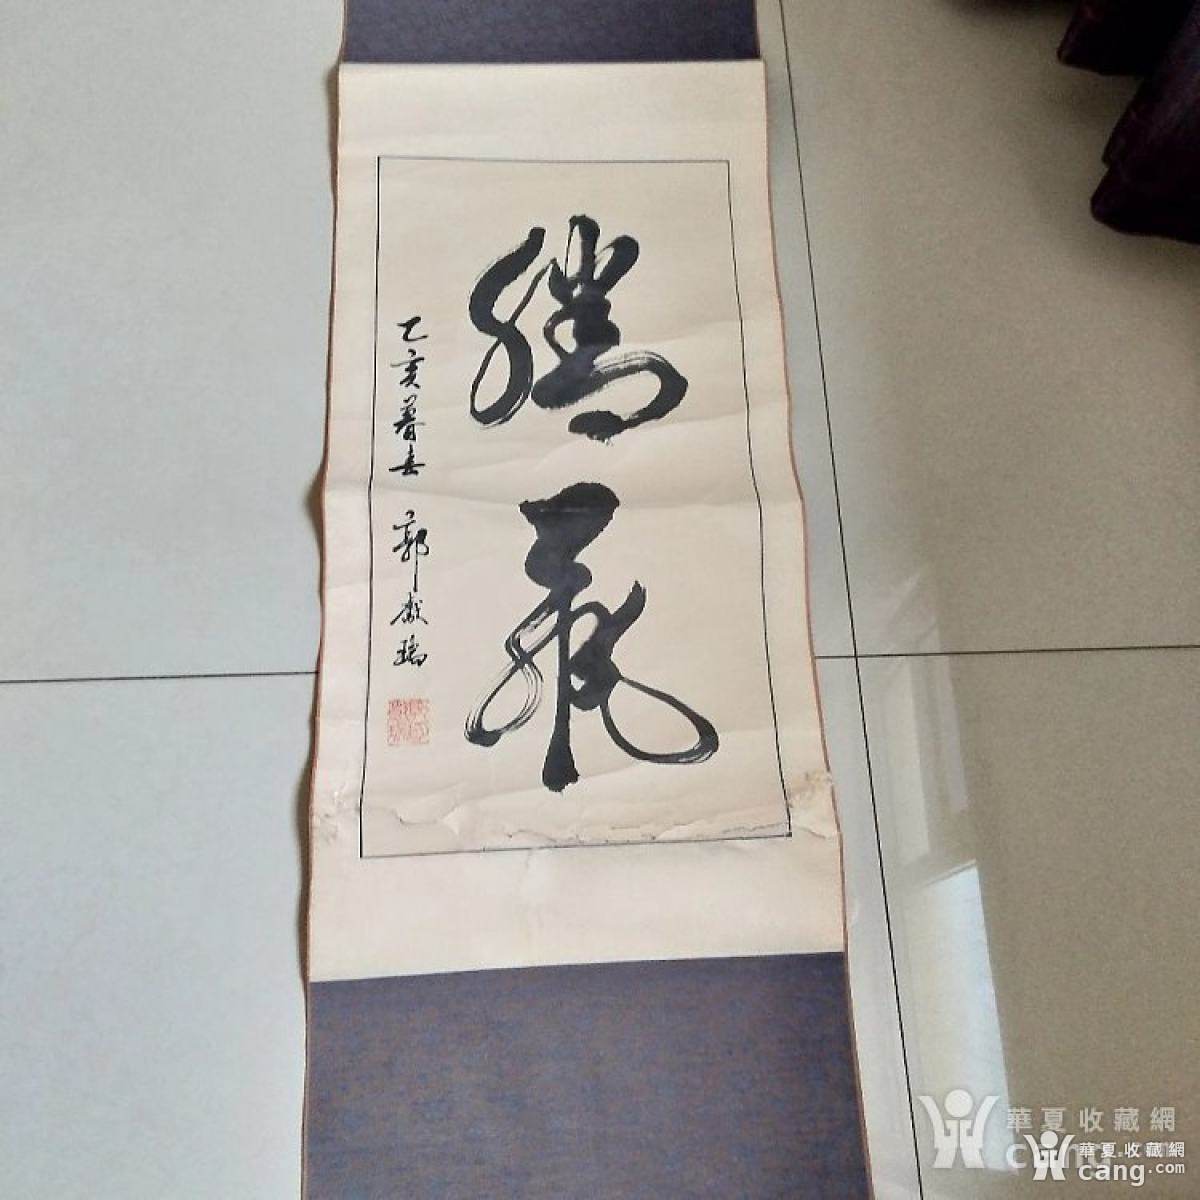 腾飛
乙亥暮春 郭献瑞
華夏收藏網
華夏收藏網
cang.com